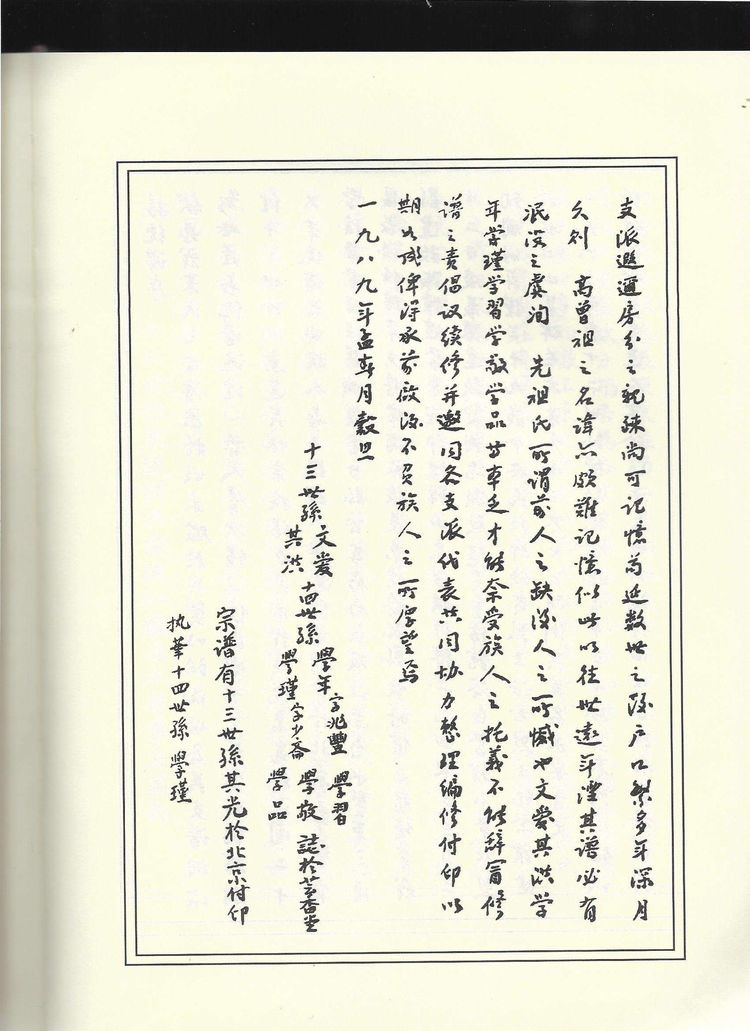 支派遐邇房分之親疎尚可記憶苟延数世之後户口繁多年深月
久則 高曾祖之名諱亦頗難記憶似此以往世遠年湮其譜必有
泯没之虞洵 先祖氏所谓前人之缺後人之所憾也文爱其洪学
年学瑾学習学敬学品等自乏才能奈受族人之托義不能辞冒修
譜之責倡议续修并邀同各支派代表共同协力整理編修付印以
期以成俾得承前啟後不负族人之所厚望焉
一九八九年孟春月穀旦
十三世孫 文爱 其洪 十四世孫 學年字兆豐 學瑾字少斋 學習 學敬 學品 誌於 香堂
宗谱有十三世孫其光於北京付印
执華十四世孫 學瑾